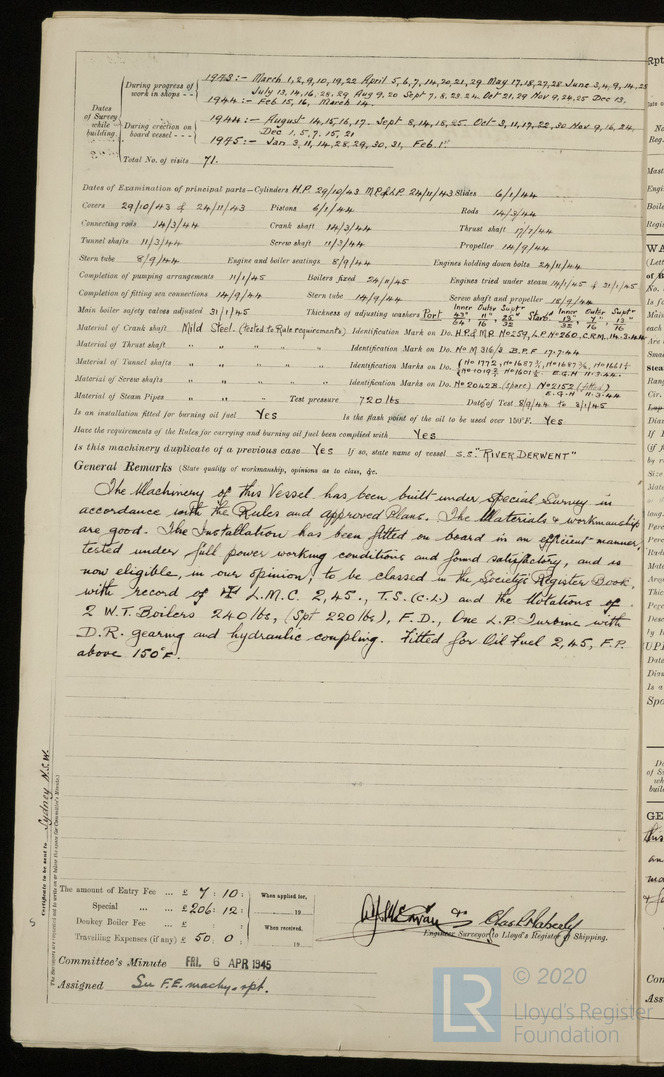 1943:- March 1,2,9,10,19,22 April 5,6,7,14,20,21,29 May 17,18,27,28 June 3,4,9,14,25
During progress of work in shops - -
July 13,14,16,28,29 Aug 9,20 Sept 7,8,23,24, Oct 21,29 Nov 9,24,25 Dec 13,
1944:- Feb 15,16, March 14.
Dates of Survey while building
During erection on board vessel - - -
1944:- August 14,15,16,17. Sept 8,14,18,25 Oct 3,11,17,22,30 Nov 9,16,24,
Dec 1,5,7,15,21
1945:- Jan 3,11,14,28,29,30,31, Feb. 1st
Total No. of visits 71.
Dates of Examination of principal parts—Cylinders H.P. 29/10/43 M.P.&L.P. 24/11/43 Slides 6/1/44
Covers 29/10/43 & 24/11/43 Pistons 6/1/44 Rods 14/3/44
Connecting rods 14/3/44 Crank shaft 14/3/44 Thrust shaft 17/7/44
Tunnel shafts 11/3/44 Screw shaft 11/3/44 Propeller 14/9/44
Stern tube 8/9/44 Engine and boiler seatings 8/9/44 Engines holding down bolts 24/11/44
Completion of pumping arrangements 11/1/45 Boilers fixed 24/11/45 Engines tried under steam 14/1/45 & 31/1/45
Completion of fitting sea connections 14/9/44 Stern tube 14/9/44 Screw shaft and propeller 18/9/44
Main boiler safety valves adjusted 31/1/45 Thickness of adjusting washers Port Inner 43/64" Outer 11/16" Supt 25/32" Starbd. Inner 13/32" Outer 7/16" Supt 13/16"
Material of Crank shaft Mild Steel. (tested to Rule requirements) Identification Mark on Do. H.P.& M.P. No259, L.P No260. C.R.M. 14.3.44
Material of Thrust shaft " " " Identification Mark on Do. No M 316/3 B.P.F 17.7.44
Material of Tunnel shafts " " " " Identification Marks on Do.
Material of Screw shafts " " " Identification Marks on Do. No 2042B (spare) No2152 (fitted) E.G.H 11.3.44
Material of Steam Pipes " " " Test pressure 720 lbs Date of Test 8/9/44 to 3/1/45
Is an installation fitted for burning oil fuel Yes Is the flash point of the oil to be used over 150°F. Yes
Have the requirements of the Rules for carrying and burning oil fuel been complied with Yes
Is this machinery duplicate of a previous case Yes If so, state name of vessel S.S. "RIVER DERWENT"
General Remarks (State quality of workmanship, opinions as to class, &c.
The Machinery of this Vessel has been built under Special Survey in
accordance with the Rules and approved Plans. The Materials & workmanship
are good. The Installation has been fitted on board in an efficient manner,
tested under full power working conditions and found satisfactory, and is
now eligible, in our opinion, to be classed in the Society's Register Book,
with record of L.M.C. 2,45., T.S. (C.L) and the Notations of
2 W.T. Boilers 240 lbs, (Spt 220 lbs), F.D., One L.P. Turbine with
D.R. gearing and hydraulic coupling. Fitted for Oil Fuel 2,45, F.P.
above 150°F.
Certificate to be sent to Sydney N.S.W.
(The Surveyors are requested not to write on or below the space for Committee's Minute.)
The amount of Entry Fee ... £ 7 : 10 : When applied for,
Special ... ... £ 206 : 12 : 19
Donkey Boiler Fee ... £ : : When received,
Travelling Expenses (if any) £ 50 : 0 : 19
Chas. R. Maberly
Engineer Surveyor to Lloyd's Register of Shipping.
Committee's Minute FRI. 6 APR 1945
Assigned See F.E. machy. rpt.
© 2020
LR
Lloyd's Register
Foundation